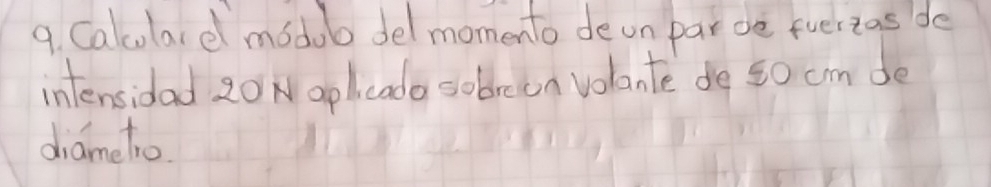 9. Calcular el módulo del momento de un par de fuerzas de
intensidad 20 N aplicado sobre un volante de 50 cm de
diámetro.